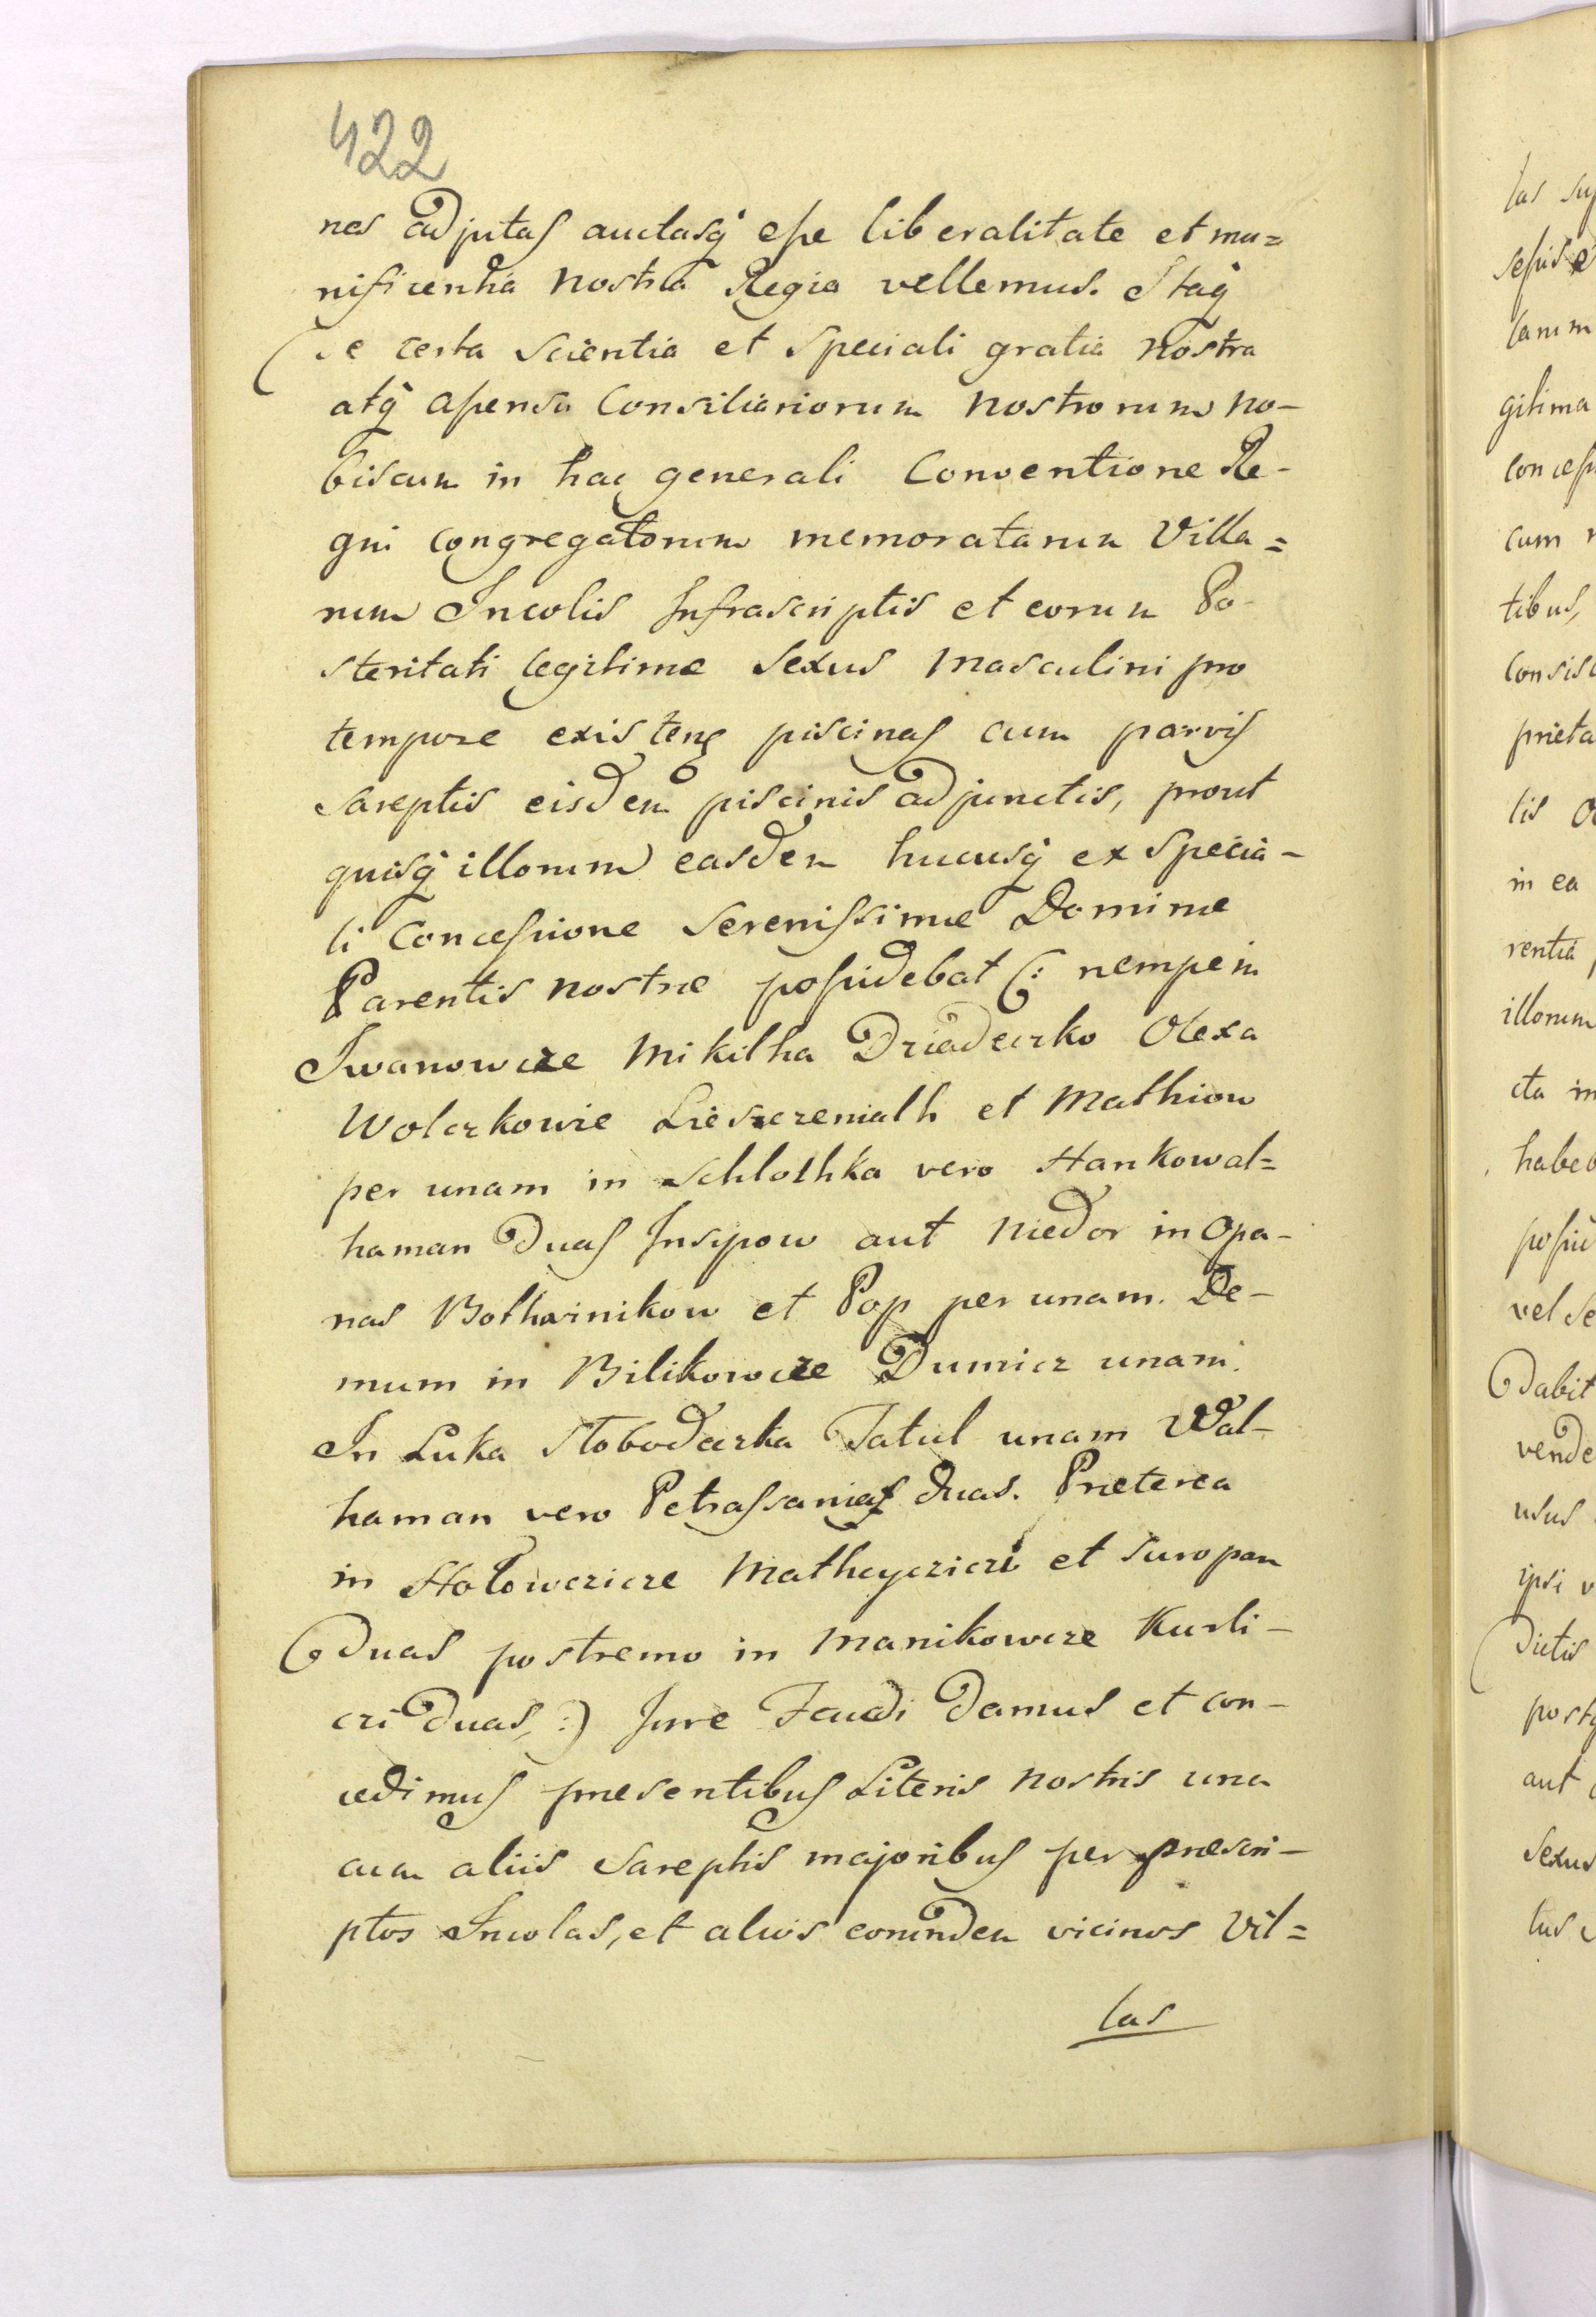 422
nes adjutas auctasq̃ esse liberalitate et mu=
nificentia nostra Regia vellemus. Itaq̃
de certa scientia et speciali gratia nostra
atq̃ assensu Consiliariorum nostrorum no-
biscum in hac generali Conventione Re-
gni congregatorum memoratarum Villa=
rum Incolis Infrascriptis et eorum Po-
steritati legitimæ sexus masculini pro
tempore existens piscinas cum parvis
sareptis eisdem piscinis adjunctis, prout
quisq̃ illorum easdem hucusq̃ ex specia-
li Concessione Serenissimæ Dominæ
Parentis nostræ possidebat (: nempe in
Iwanowcze Mikitha Dziadeczko Olexa
Wolczkowie Liesczeniath et Mathiow
per unam in Schlothka vero Hankowal=
haman duas Insipow aut Niedor in Opa-
nas Bothwinikow et Pop per unam. De-
mum in Bilikowcze Dumicz unam.
In Luka Slobodczka Tatul unam Wal-
haman vero Petrassanies duas. Præterea
in Holowczicze Matheyczicze et Suropan
duas postremo in Manikowcze Kusli-
czi duas, :) Jure Feudi damus et con-
cedimus præsentibus Literis nostris una
cum aliis Sareptis majoribus per præscri-
ptos Incolas, et alios eorundem vicinos Vil=
las
las
tamm
gitima
cum
tibus,
prieta
in ea
rentia
illorum
cta in
vel se
dabit
vende
usus
ipsi v
dictis
aut
sexus